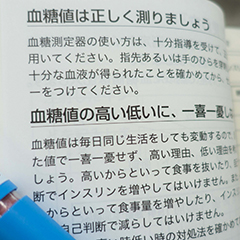 血糖値は正しく測りましょう
血糖測定器の使い方は、十分指導を受けて、
用いてください。指先あるいは手のひらを穿
十分な血液が得られたことを確かめてから、
ーをつけてください。
血糖値の高い低いに、一喜一憂しな
血糖値は毎日同じ生活をしても変動するので、
た値で一喜一憂せず、高い理由、低い理由を
しょう。高いからといって食事を抜いたり、自
断でインスリンを増やしてはいけません。また
からといって食事量を増やしたり、インス
自己判断で減らしてはいけません。
低い時の対処法を確認